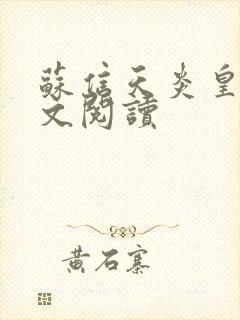 蘇信天炎皇
文閱讀
黃石寨